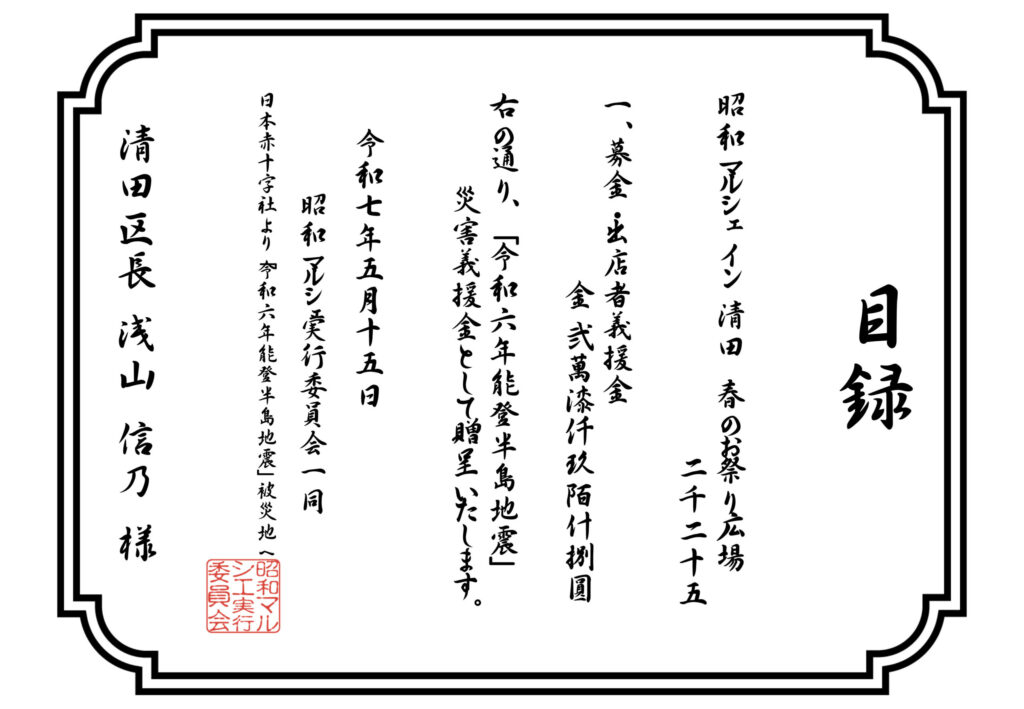 目録
昭和マルシェイン清田 春のお祭り広場
二千二十五
一、募金 出店者義援金
金 弐萬漆仟玖陌什捌圓
右の通り、「令和六年能登半島地震」
災害義援金として贈呈いたします。
令和七年五月十五日
昭和マルシェ実行委員会一同
日本赤十字社より「令和六年能登半島地震」被災地へ
清田区長 浅山 信乃 様
昭和マル
シエ実行
委員会